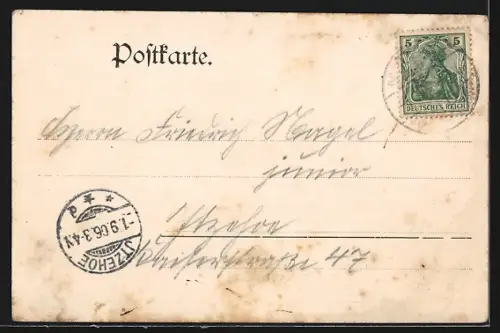 Postkarte.
5 5
DEUTSCHES REICH
Herrn Friedrich Nagel
junior
Itzehoe
Kaiserstraße 47
ITZEHOE
-1.9.06.3-4N